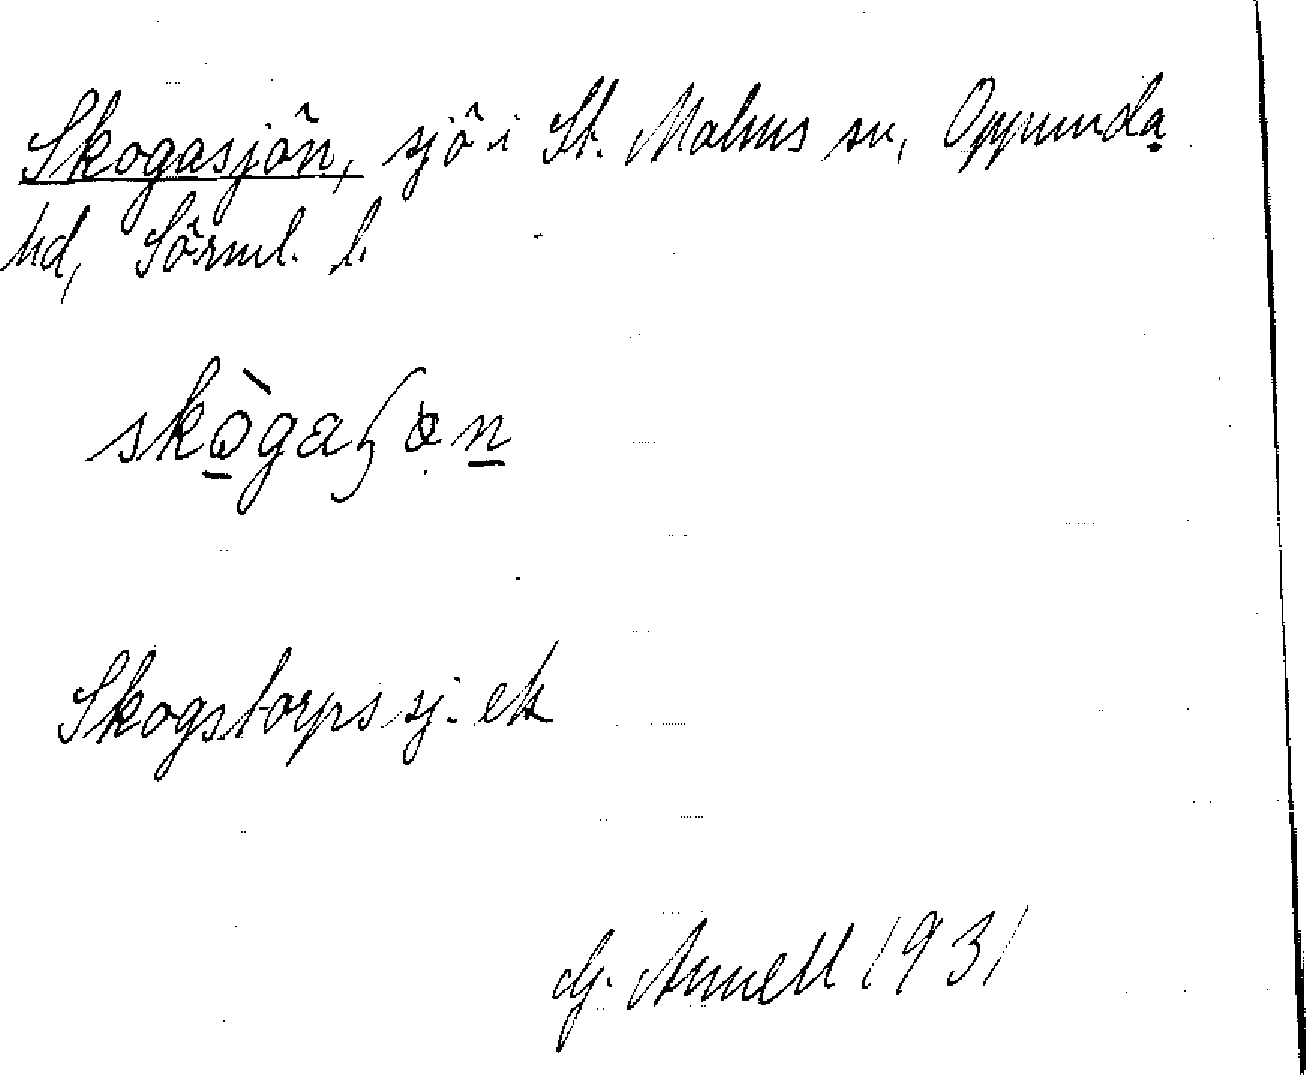 Skogasjön, sjö i St. Malms sn, Oppunda
hd, Sörml. l.
skògaʃön
Skogstorpssj. ek
G. Annell 1931